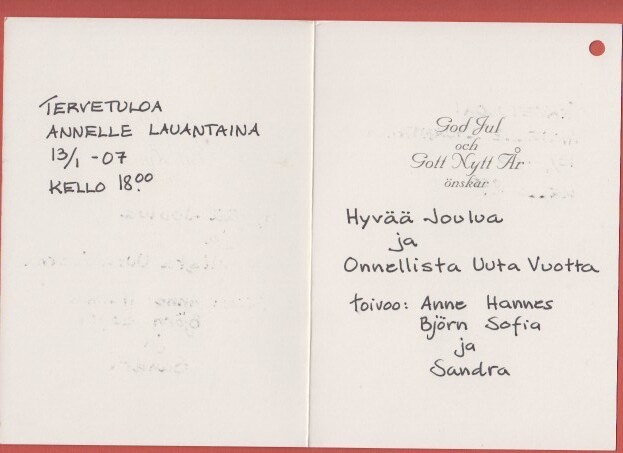 TERVETULOA
ANNELLE LAUANTAINA
13/1 -07
KELLO 18.00
God Jul
och
Gott Nytt År
önskar
Hyvää Joulua
ja
Onnellista Uuta Vuotta
toivoo: Anne Hannes
Björn Sofia
ja
Sandra